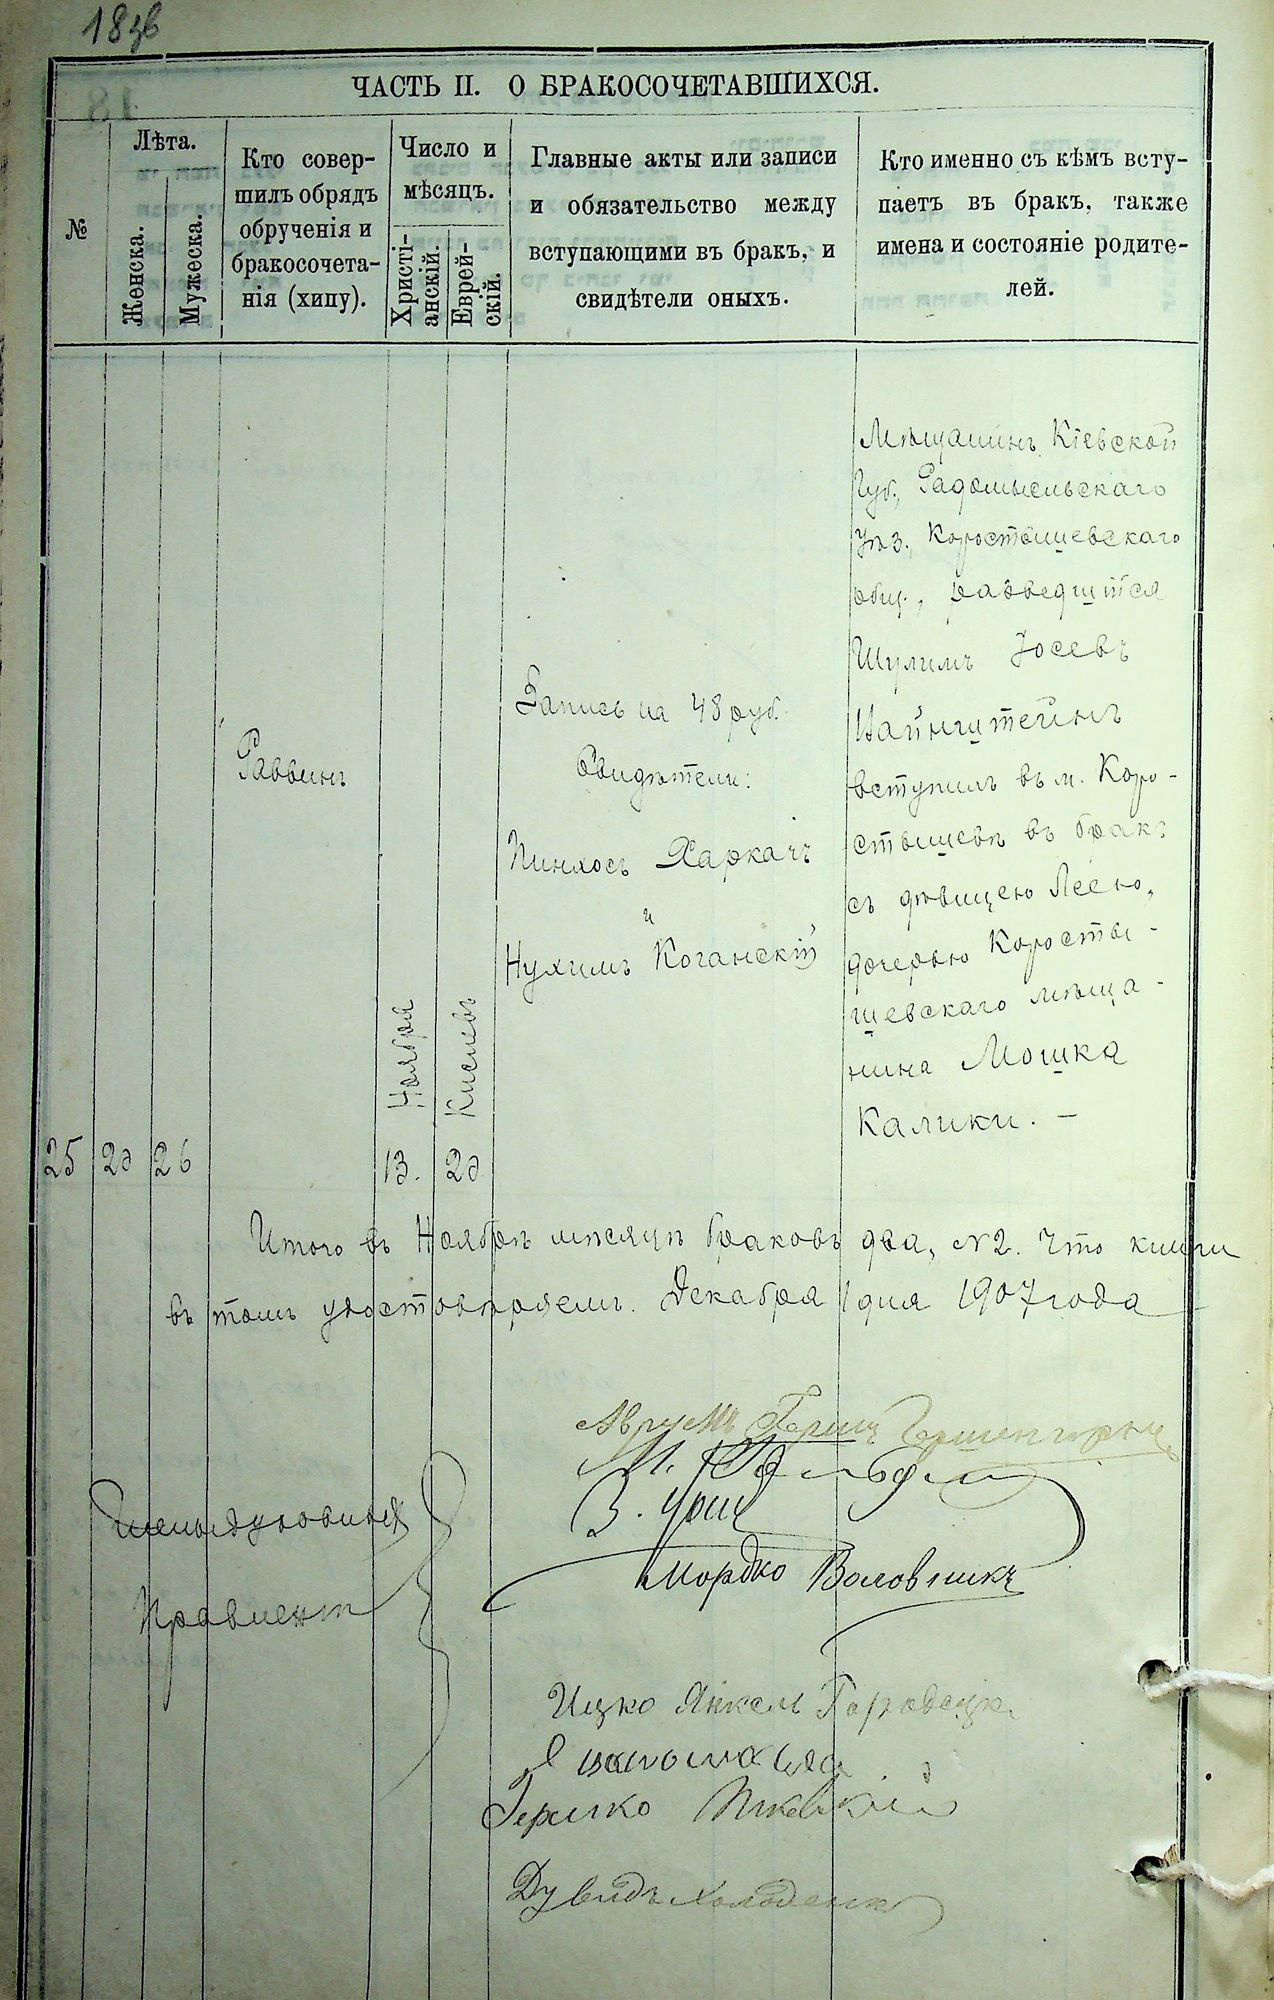 18 зв
ЧАСТЬ II. О БРАКОСОЧЕТАВШИХСЯ.
№
Лѣта.
Женска.
Мужеска.
Кто совер-
шилъ обрядъ
обрученія и
бракосочета-
нія (хипу).
Число и
мѣсяцъ.
Христі-
анскій.
Еврей-
скій.
Главные акты или записи
и обязательство между
вступающими въ бракъ, и
свидѣтели оныхъ.
Кто именно съ кѣмъ всту-
паетъ въ бракъ, также
имена и состояніе родите-
лей.
25
20
26
Раввинъ
Ноября
13.
Кислевъ
20
Запись на 48 руб.
Свидѣтели:
Пинхосъ Харкачъ
и
Нухимъ Коганскій
Мѣщанинъ Кіевской
Губ., Радомысльскаго
Уѣз., Коростышевскаго
общ., разведшійся
Шулимъ Іосевъ
Вайнштейнъ
вступилъ въ м. Коро-
стышевѣ въ бракъ
съ дѣвицею Леею,
дочерью Коросты-
шевскаго мѣща-
нина Мошка
Калики. —
Итого въ Ноябрѣ мѣсяцѣ браковъ два, №2. Что книги
въ томъ удостовѣряемъ. Декабря 1 дня 1907 года
Аврумъ Герш
З. Уриц
Мордко Воловникъ
Правленія
Ицко Янкель Городецк
Гершко
Дувидъ Холоденко